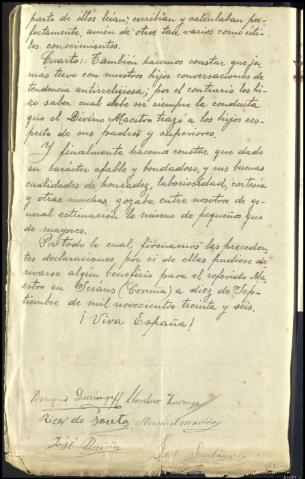 parte de ellos leían; escribían y calculaban per-
fectamente, amén de otros tan varios como úti-
les conocimientos.
Cuarto: También hacemos constar que ja-
mas tuvo con nuestros hijos conversaciones de
tendencia antirreligiosa; por el contrario les hi-
zo saber cual debe ser siempre la conducta
que el Divino Maestro trazó a los hijos res-
pecto de sus padres y superiores.
Y finalmente hacemos constar que dado
su carácter afable y bondadoso, y sus buenas
cualidades de honradez, laboriosidad, cortesía
y otras muchas, gozaba entre nosotros de ge-
neral estimación lo mismo de pequeños que
de mayores.
Por todo lo cual, firmamos las preceden-
tes declaraciones por si de ellas pudiese de-
rivarse algún beneficio para el referido Ma-
estro en (Coruña) a diez de Sep-
tiembre de mil novecientos treinta y seis.
¡Viva España!
de Souto
José
José